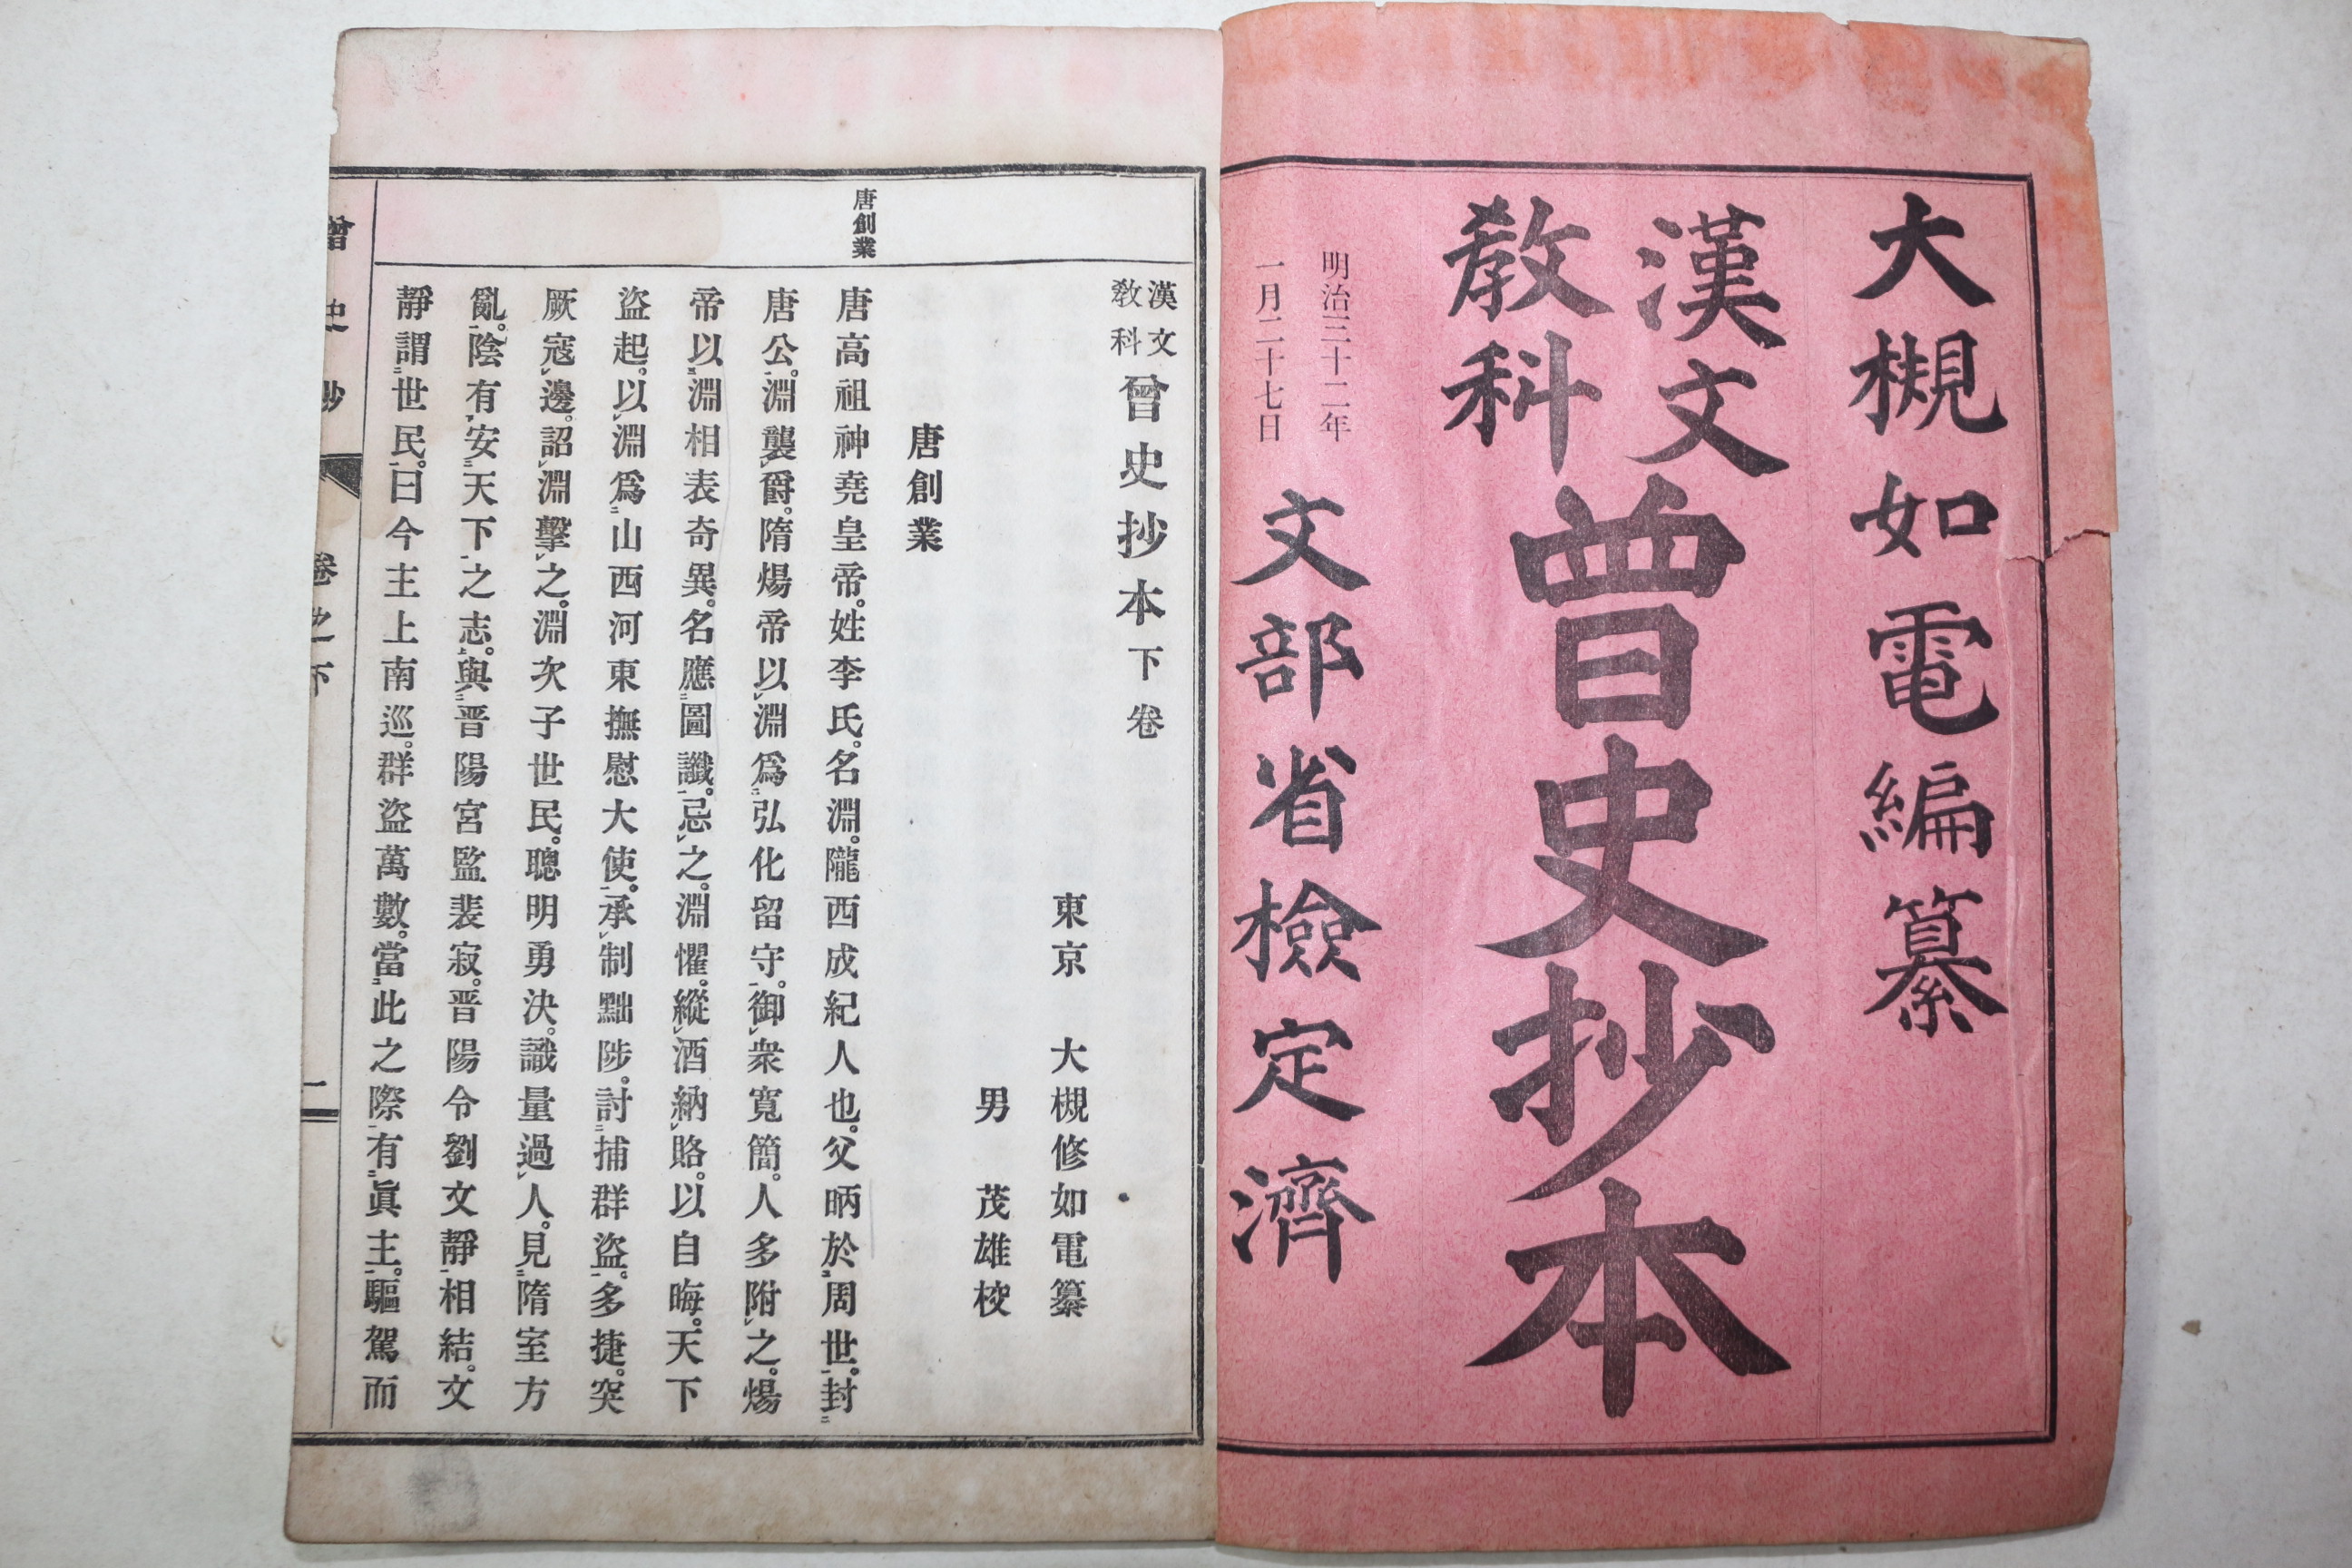 大槻如電編纂
漢文
教科
曾史抄本
明治三十二年
一月二十七日
文部省檢定濟
唐創業
漢文
教科
曾史抄本下卷
東京 大槻修如電纂
男 茂雄校
唐創業
唐高祖神堯皇帝。姓李氏。名淵。隴西成紀人也。父昞於周世。封
唐公。淵襲爵。隋煬帝以淵爲弘化留守。御衆寬簡。人多附之。煬
帝以淵相表奇異。名應圖讖。忌之。淵懼。縱酒納賂。以自晦。天下
盜起。以淵爲山西河東撫慰大使。承制黜陟。討捕群盜。多捷。突
厥寇邊。詔淵擊之。淵次子世民。聰明勇決。識量過人。見隋室方
亂。陰有安天下之志。與晋陽宮監裴寂。晋陽令劉文靜相結。文
靜謂世民。曰今主上南巡。群盜萬數。當此之際有眞主。驅駕而
曾史抄 卷之下 一